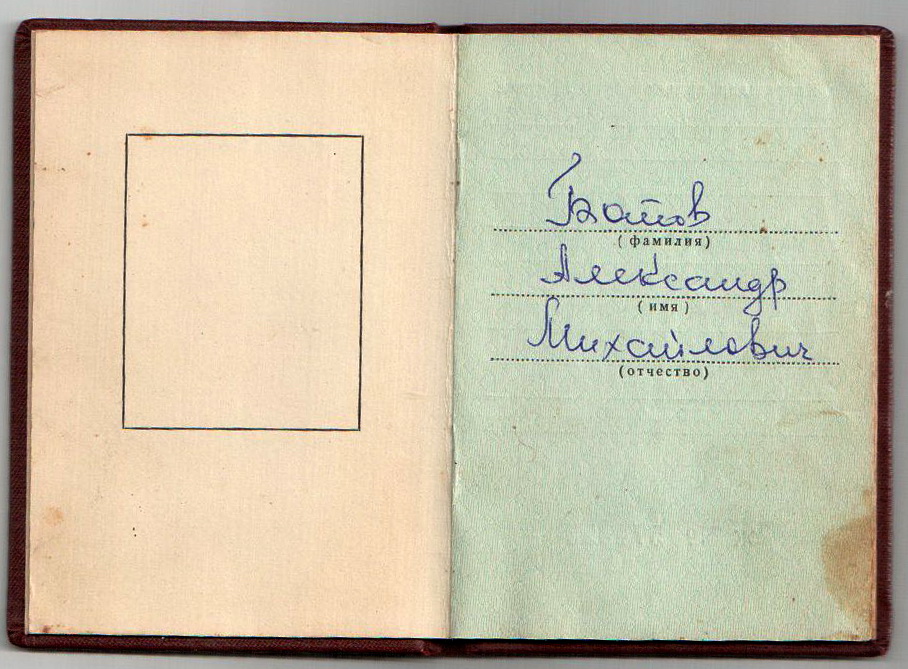 Батов
(фамилия)
Александр
(имя)
Михайлович
(отчество)